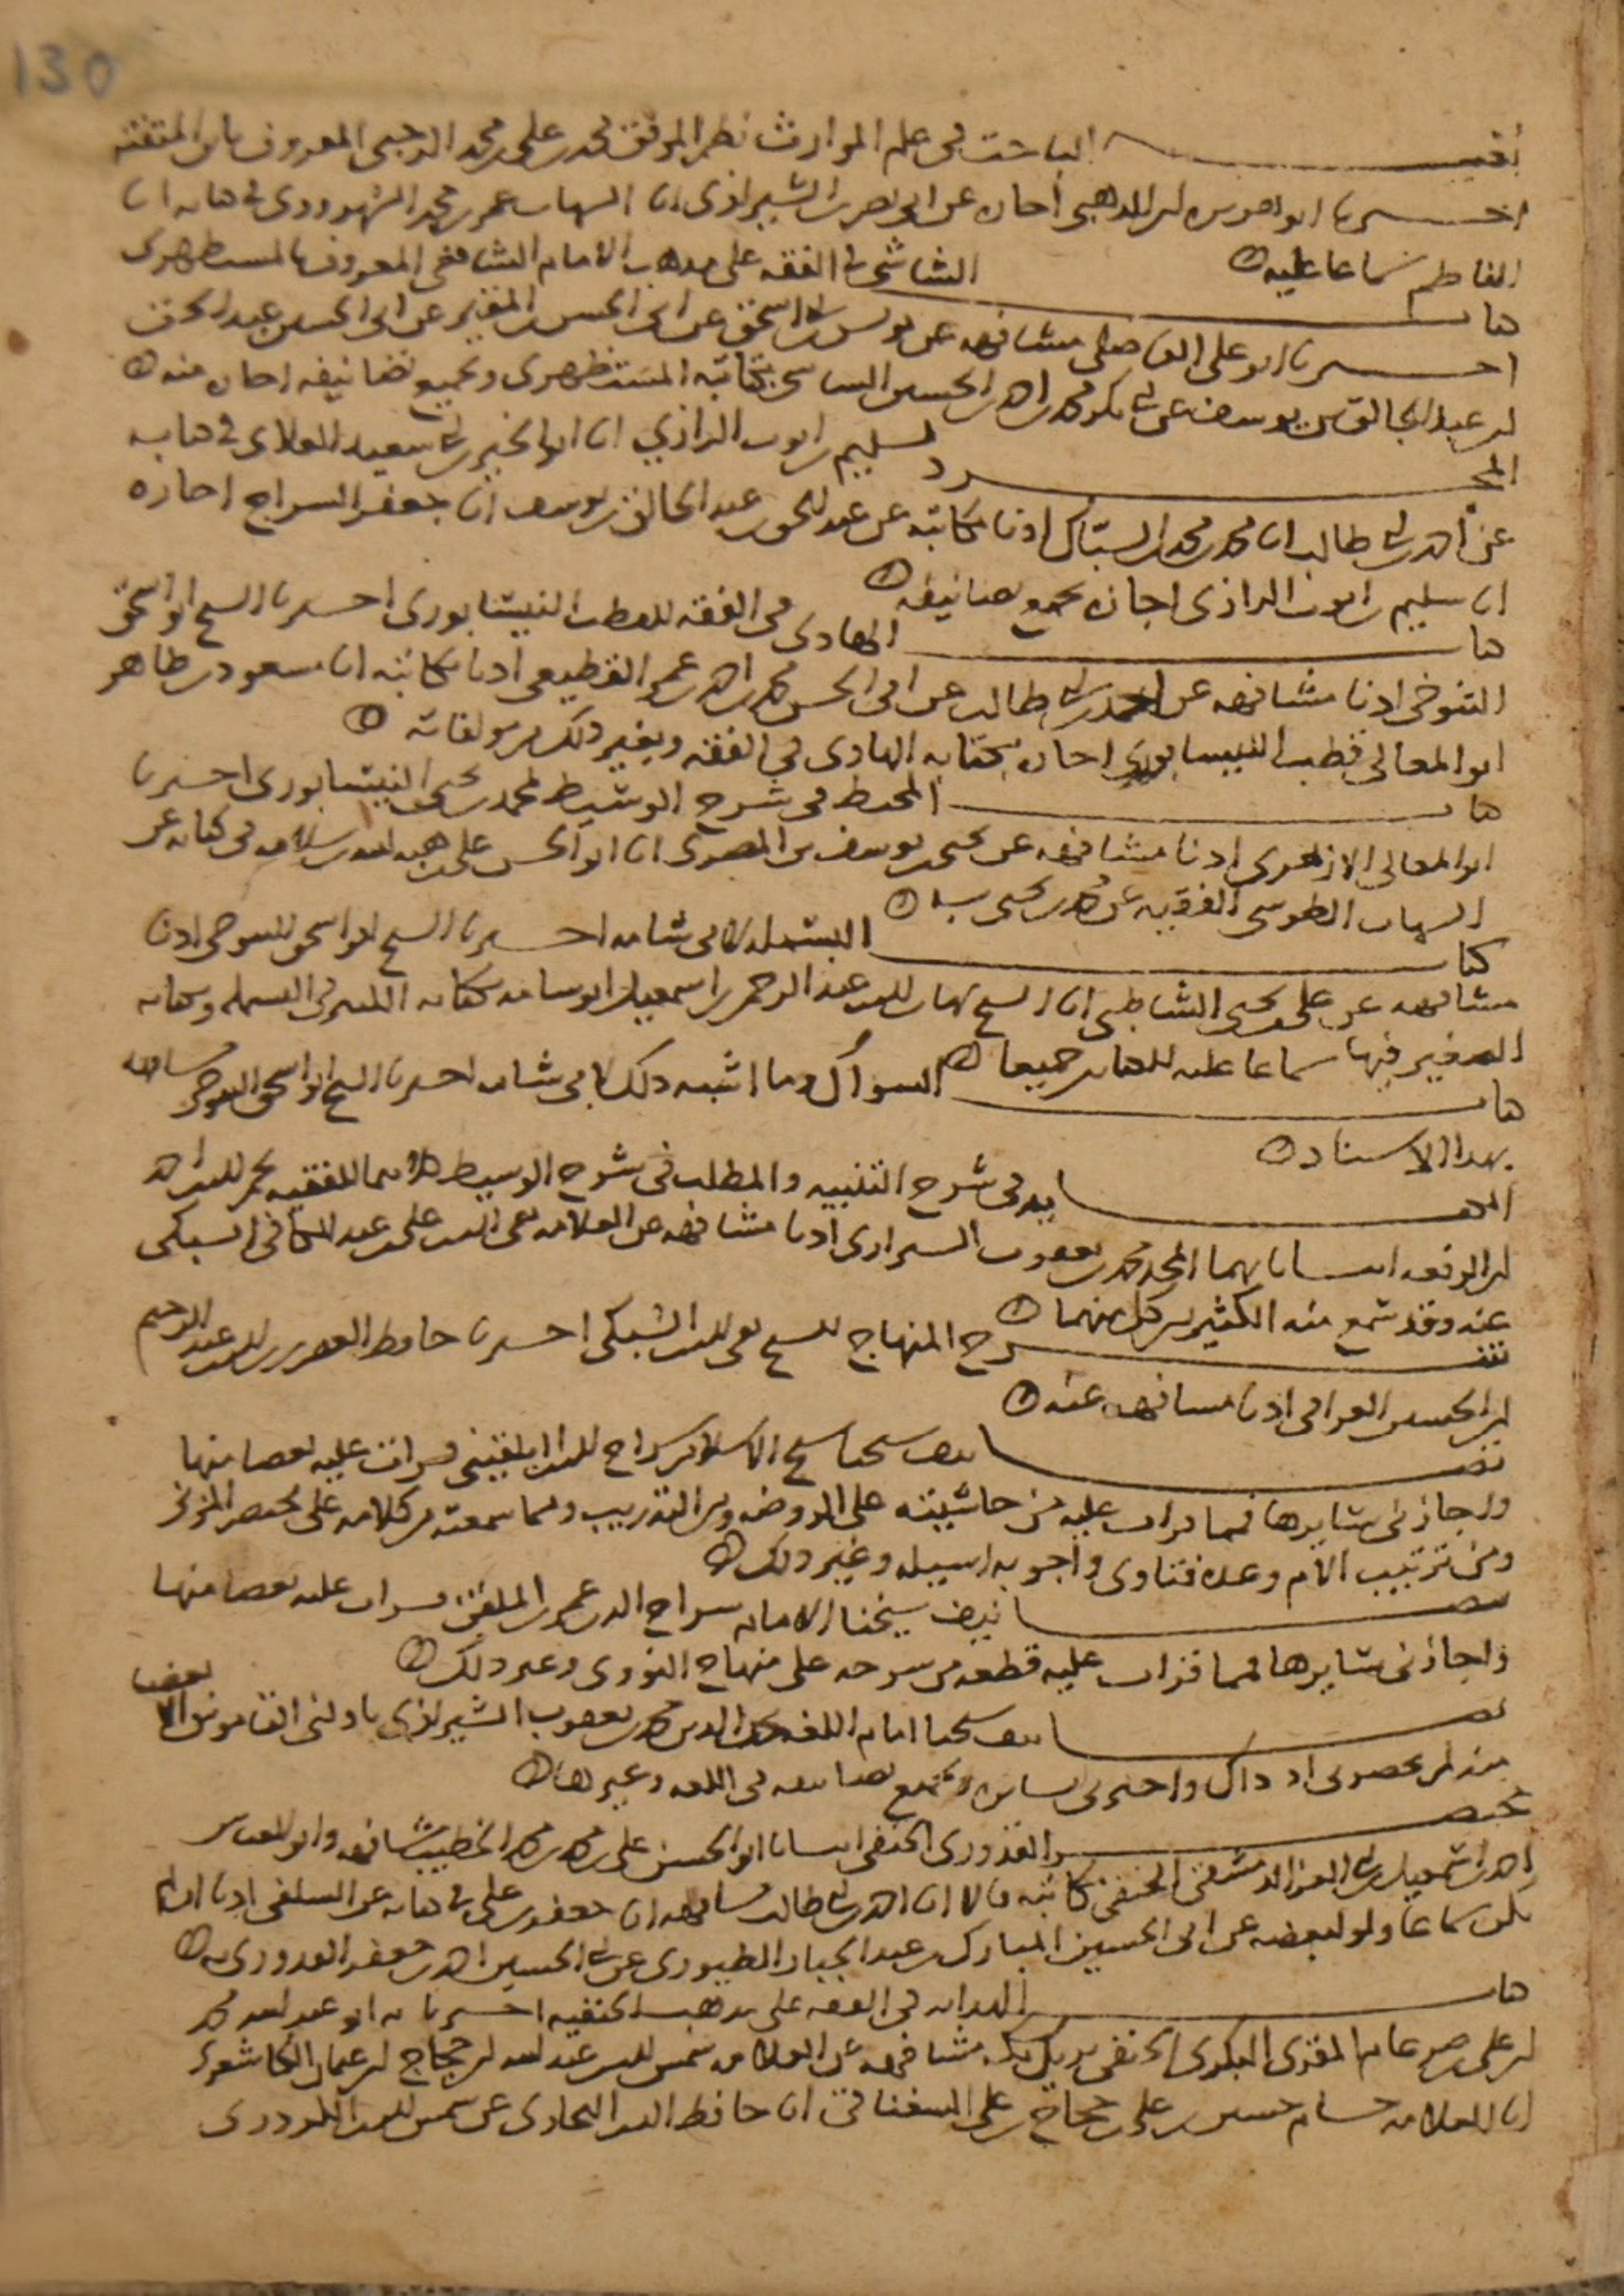 130
الباحث في علم الموارث نظم الموفق محمد بن علي بن محمد الرحبي المعروف بابن المتقنة
ابو هريرة ابن الذهبي اجازة عن ابي نصر ابن الشيرازي انا الشهاب عمر بن محمد السهروردي في كتابه انا
الناظم سماعا عليه
الشاشي في الفقه على مذهب الامام الشافعي المعروف بالمستظهري
ابو علي الفاضلي مشافهة عن يونس بن ابي اسحق عن ابي الحسن بن المقير عن ابي الحسين عبد الحق
ابن عبد الخالق بن يوسف عن ابي بكر محمد بن احمد بن الحسين الشاشي بكتابه المستظهري وبجميع تصانيفه اجازة منه
المجرد
لسليم بن ايوب الرازي انا ابو الخير بن ابي سعيد العلائي في كتابه
عن احمد بن ابي طالب انا محمد بن محمد بن السباك اذنا مكاتبة عن عبد الحق بن عبد الخالق بن يوسف انا جعفر السراج اجازة
انا سليم بن ايوب الرازي اجازة بجميع تصانيفه
كتاب الهادي في الفقه للقطب النيسابوري اخبرنا الشيخ ابو اسحق
التنوخي اذنا مشافهة عن احمد بن ابي طالب عن ابي الحسن محمد بن احمد بن عمر القطيعي اذنا مكاتبة انا مسعود بن طاهر
ابو المعالي قطب النيسابوري اجازة بكتابه الهادي في الفقه وبغير ذلك من مولفاته
كتاب المحيط في شرح الوسيط لمحمد بن يحيى النيسابوري اخبرنا
ابو المعالي الازهري اذنا مشافهة عن يحيى بن يوسف بن المصري انا ابو الحسن علي بن هبة الله بن سلامة في كتابه عن
الشهاب الطوسي الفقيه عن محمد بن يحيى به
كتاب البسملة لابي شامة اخبرنا الشيخ ابو اسحق التنوخي اذنا
مشافهة عن علي بن يحيى الشاطبي انا الشيخ شهاب الدين عبد الرحمن بن اسمعيل ابو شامة بكتابه الكبير في البسملة وبكتابه
الصغير فيها سماعا عليه للكتابين جميعا
كتاب السواك وما اشبه ذلك لابي شامة اخبرنا الشيخ ابو اسحق التنوخي مشافهة
بهذا الاسناد
في شرح التنبيه والمطلب في شرح الوسيط كلاهما للفقيه نجم الدين احمد
ابن الرفعة انبانا بهما المجد محمد بن يعقوب الشيرازي اذنا مشافهة عن العلامة تقي الدين علي بن عبد الكافي السبكي
عنه وقد سمع منه الكثير من كل منهما
شرح المنهاج للشيخ تقي الدين السبكي اخبرنا حافظ العصر زين الدين عبد الرحيم
ابن الحسين العراقي اذنا مشافهة عنه
تصانيف شيخنا شيخ الاسلام سراج الدين البلقيني قرات عليه بعضا منها
واجازني سايرها فمما قرات عليه من حاشيته على الروضة ومن التدريب ومما سمعته من كلامه على مختصر المزني
ومن ترتيب الام وعدة فتاوى واجوبة اسيلة وغير ذلك
تصانيف شيخنا الامام سراج الدين عمر بن الملقن قرات عليه بعضا منها
واجازني سايرها فمما قرات عليه قطعة من شرحه على منهاج النووي وغير ذلك
تصانيف شيخنا امام اللغة مجد الدين محمد بن يعقوب الشيرازي ناولني القاموس الا بعضا
منه لم يحضرني اذ ذاك واجازني بسايره وبجميع تصانيفه في اللغة وغيرها
مختصر القدوري الحنفي انبانا ابو الحسن علي بن محمد بن محمد الخطيب مشافهة وابو العباس
احمد بن اسمعيل بن ابي العز الدمشقي الحنفي مكاتبة قالا انا احمد بن ابي طالب مشافهة انا جعفر بن علي في كتابه عن السلفي اذنا ان لم
يكن سماعا ولو لبعضه عن ابي الحسين المبارك بن عبد الجبار الطيوري عن ابي الحسين احمد بن جعفر القدوري به
كتاب الهداية في الفقه على مذهب الحنفية اخبرنا به ابو عبد الله محمد
ابن علي بن عامر المقري البكري الحنفي مشافهة عن العلامة شمس الدين عبد الله بن حجاج بن عمر الكاشغري
انا العلامة حسام حسين بن علي بن حجاج بن علي السغناقي انا حافظ الدين البخاري عن شمس الدين الكردري